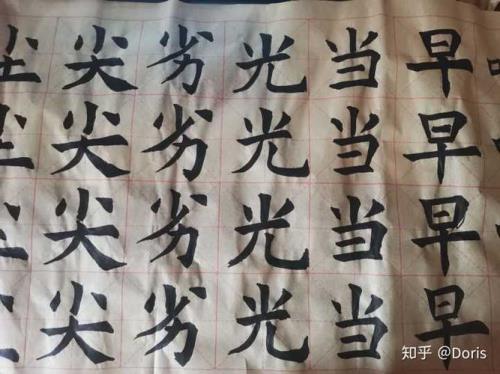 尘尖劣光当早
尘尖劣光当早
尘尖劣光当早
尘尖劣光当早
知乎 @Doris